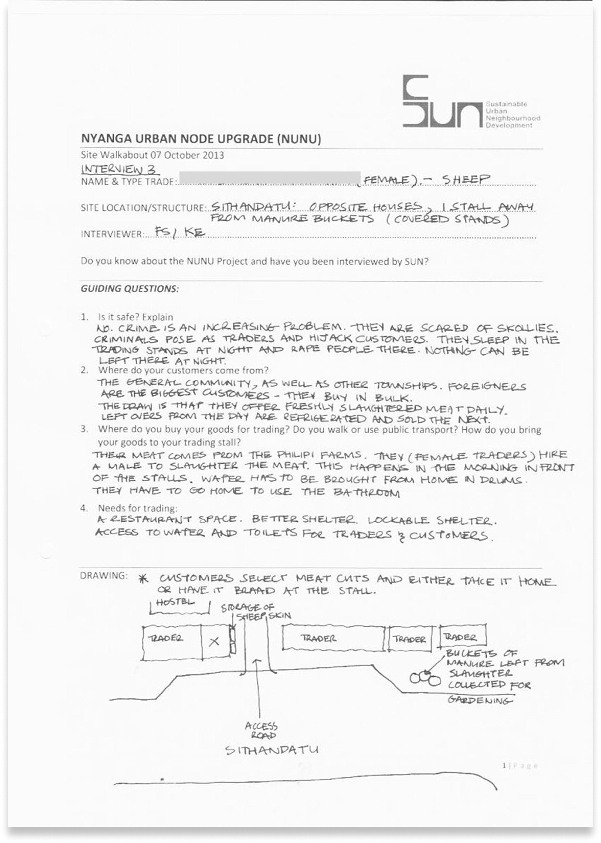 SUN
Sustainable
Urban
Neighbourhood
Development
NYANGA URBAN NODE UPGRADE (NUNU)
Site Walkabout 07 October 2013
INTERVIEW 3
NAME & TYPE TRADE: (FEMALE). – SHEEP
SITE LOCATION/STRUCTURE: SITHANDATU: OPPOSITE HOUSES, 1 STALL AWAY
FROM MANURE BUCKETS (COVERED STANDS)
INTERVIEWER: FS/ KE
Do you know about the NUNU Project and have you been interviewed by SUN?
GUIDING QUESTIONS:
1. Is it safe? Explain
NO. CRIME IS AN INCREASING PROBLEM. THEY ARE SCARED OF SKOLLIES.
CRIMINALS POSE AS TRADERS AND HIJACK CUSTOMERS. THEY SLEEP IN THE
TRADING STANDS AT NIGHT AND RAPE PEOPLE THERE. NOTHING CAN BE
LEFT THERE AT NIGHT.
2. Where do your customers come from?
THE GENERAL COMMUNITY, AS WELL AS OTHER TOWNSHIPS. FOREIGNERS
ARE THE BIGGEST CUSTOMERS – THEY BUY IN BULK.
THE DRAW IS THAT THEY OFFER FRESHLY SLAUGHTERED MEAT DAILY.
LEFT OVERS FROM THE DAY ARE REFRIGERATED AND SOLD THE NEXT.
3. Where do you buy your goods for trading? Do you walk or use public transport? How do you bring
your goods to your trading stall?
THEIR MEAT COMES FROM THE PHILIPI FARMS. THEY (FEMALE TRADERS) HIRE
A MALE TO SLAUGHTER THE MEAT. THIS HAPPENS IN THE MORNING IN FRONT
OF THE STALLS. WATER HAS TO BE BROUGHT FROM HOME IN DRUMS.
THEY HAVE TO GO HOME TO USE THE BATHROOM
4. Needs for trading:
A RESTAURANT SPACE. BETTER SHELTER. LOCKABLE SHELTER.
ACCESS TO WATER AND TOILETS FOR TRADERS & CUSTOMERS.
DRAWING: * CUSTOMERS SELECT MEAT CUTS AND EITHER TAKE IT HOME
OR HAVE IT BRAAID AT THE STALL.
HOSTEL
STORAGE OF
SHEEP SKIN
TRADER
X
TRADER
TRADER
TRADER
BUCKETS OF
MANURE LEFT FROM
SLAUGHTER
COLLECTED FOR
GARDENING
ACCESS
ROAD
SITHANDATU
1 | Page